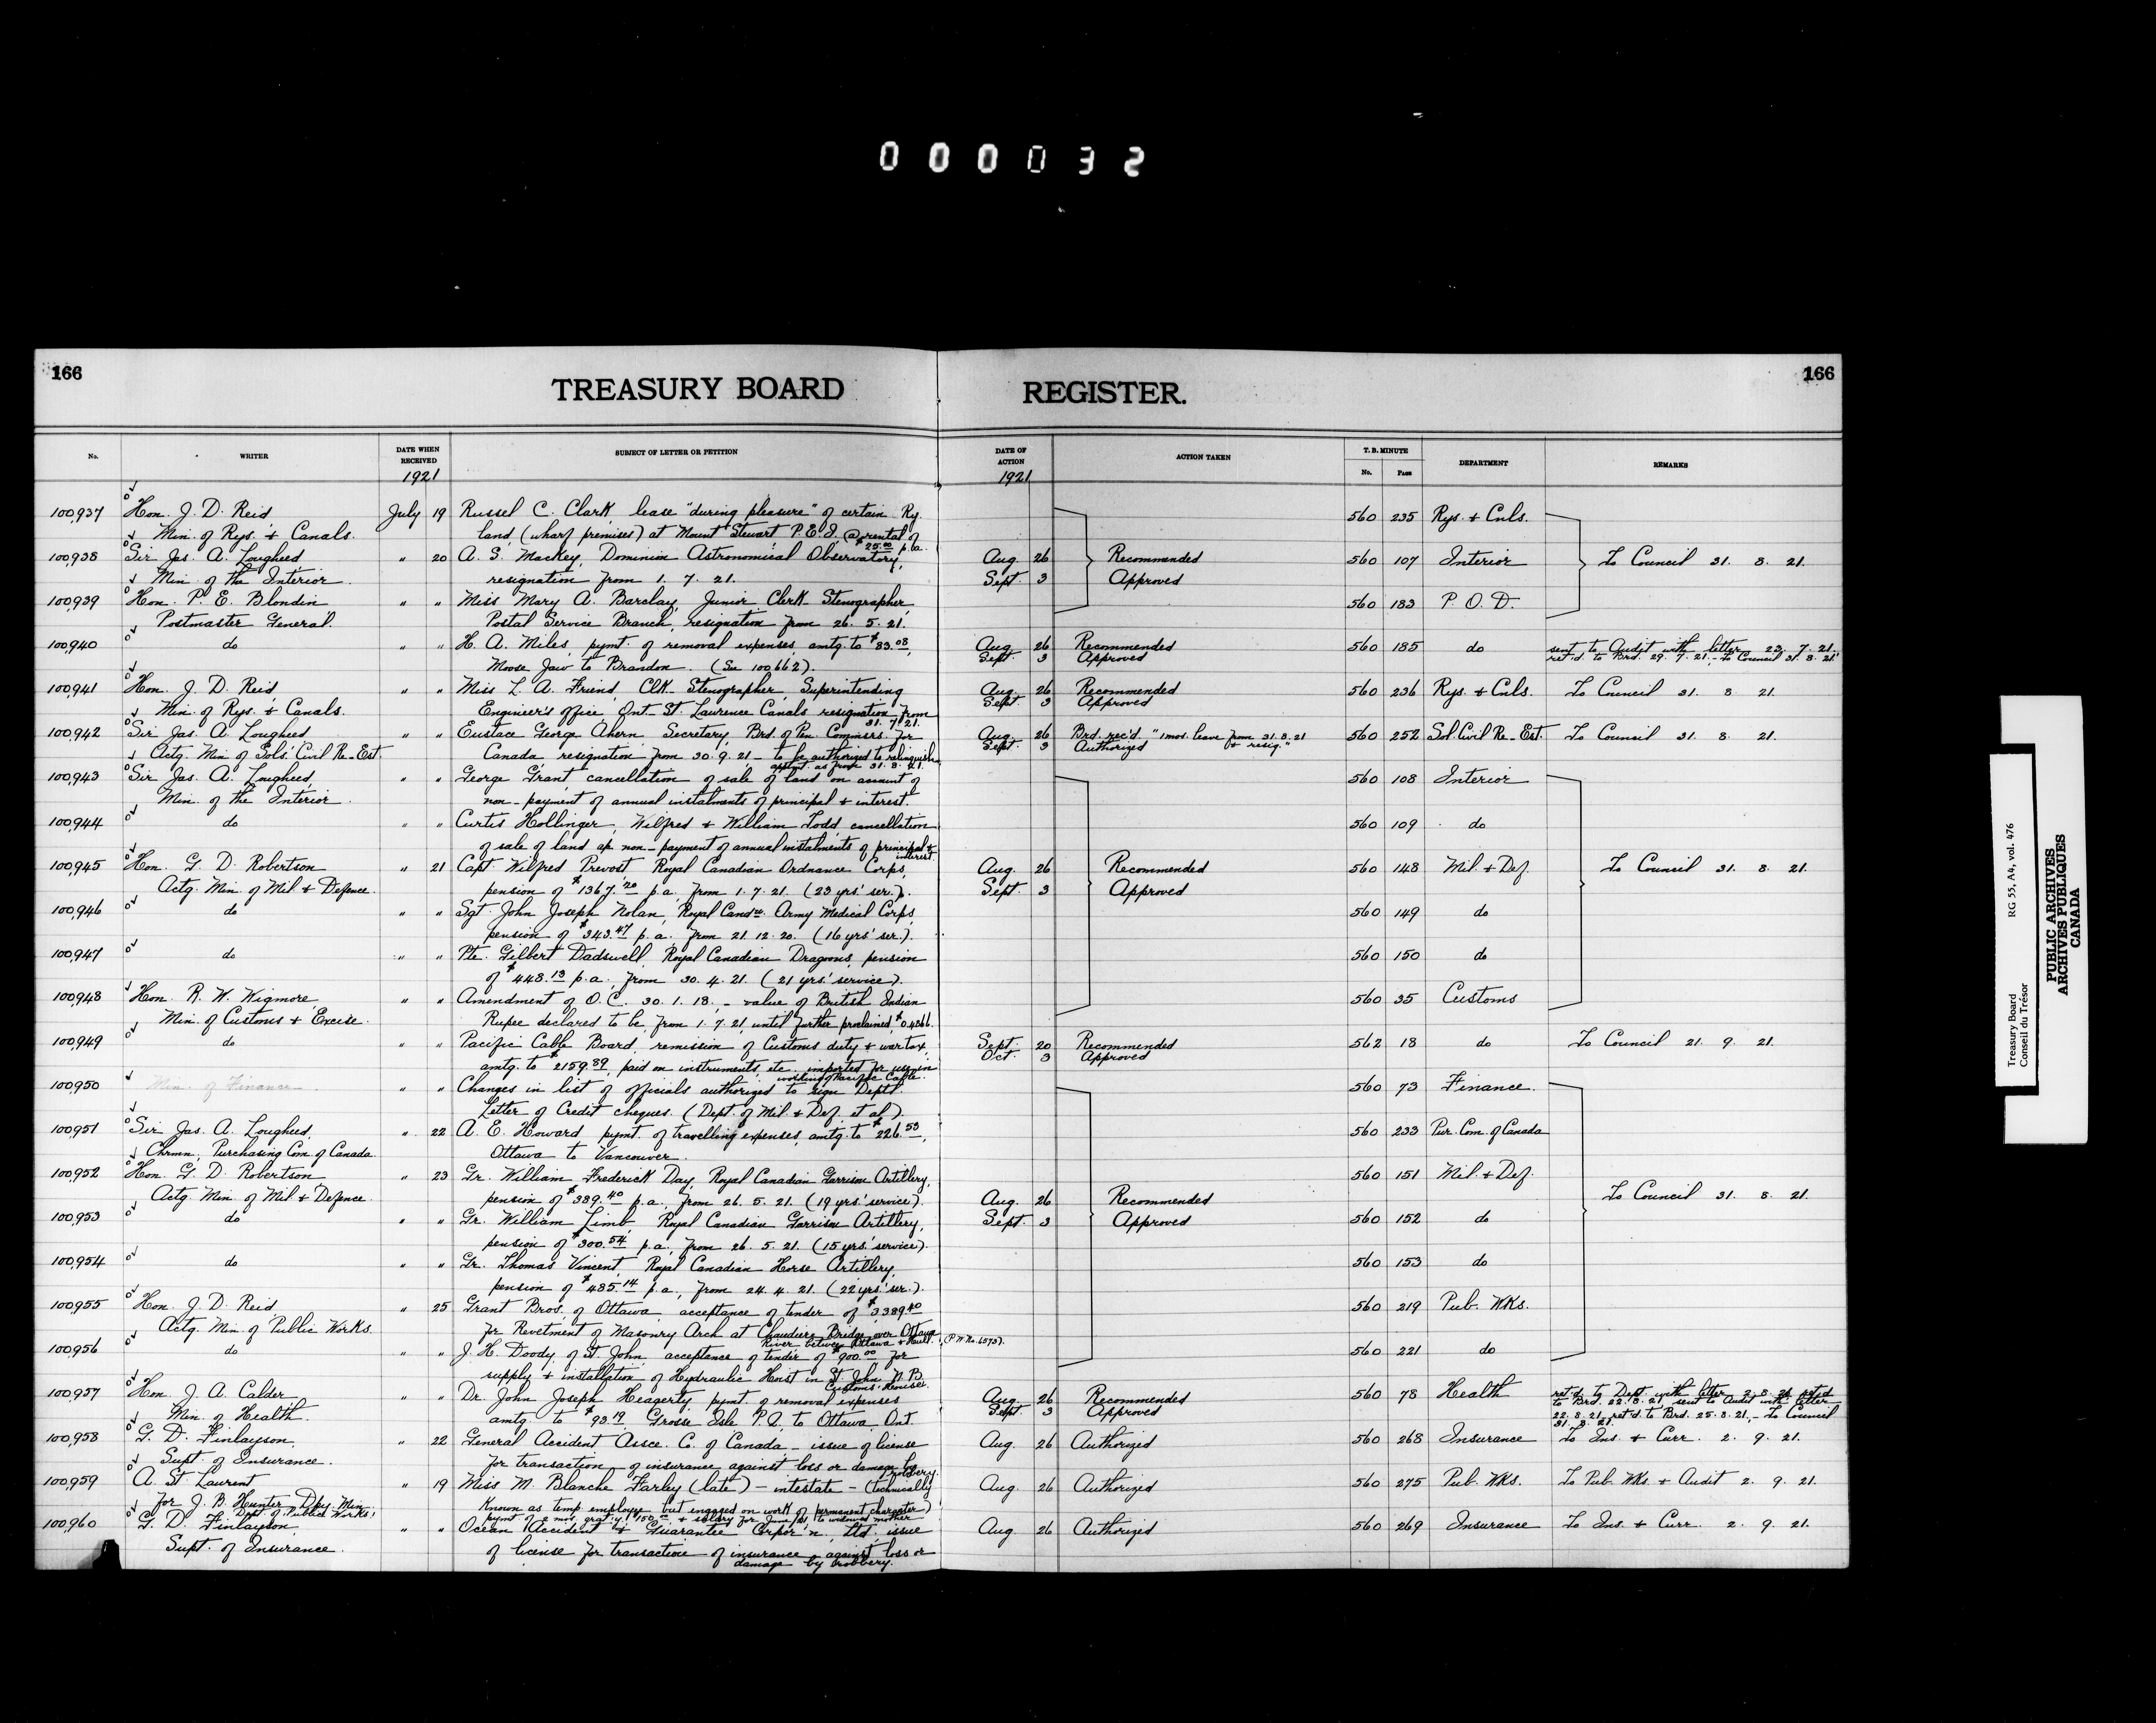 000032
166
TREASURY BOARD REGISTER.
166
No. WRITER DATE WHEN RECEIVED SUBJECT OF LETTER OR PETITION DATE OF ACTION ACTION TAKEN T. B. MINUTE No. PAGE DEPARTMENT REMARKS
1921 1921
100,937 Hon. J. D. Reid July 19 Russel C. Clark, lease "during pleasure" of certain Ry. 560 235 Rys. & Cnls.
Min. of Rys. & Canals. land (wharf premises) at Mount Stewart P.E.I. @ rental of
$25.00 p.a.
100,938 Sir Jas. A. Lougheed " 20 A. S. Mackey, Dominion Astronomical Observatory, Aug. 26 Recommended 560 107 Interior To Council 31. 8. 21.
Min. of the Interior. resignation from 1. 7. 21. Sept. 3 Approved
100,939 Hon. P. E. Blondin " " Miss Mary A. Barclay, Junior Clerk-Stenographer, 560 183 P. O. D.
Postmaster General. Postal Service Branch, resignation from 26. 5. 21.
100,940 do " " H. A. Miles, pymt. of removal expenses, amtg. to $83.08, Aug. 26 Recommended 560 185 do sent to Audit with letter 23. 7. 21.
Moose Jaw to Brandon. (See 100,662). Sept. 3 Approved ret'd. to Brd. 29. 7. 21, - To Council 31. 8. 21.
100,941 Hon. J. D. Reid " " Miss L. A. Friend, Clk-Stenographer, Superintending Aug. 26 Recommended 560 236 Rys. & Cnls. To Council 31. 8. 21.
Min. of Rys. & Canals. Engineer's office, Ont-St. Lawrence Canals resignation from Sept. 3 Approved
31. 7. 21.
100,942 Sir Jas. A. Lougheed " " Eustace George Ahern Secretary, Brd. of Pen. Commsrs. for Aug. 26 Brd. rec'd. "1 mos. leave from 31.8.21 560 252 Sol. Civil Re-Est. To Council 31. 8. 21.
Actg. Min. of Sols'. Civil Re-Est. Canada resignation from 30. 9. 21 - to be authorized to relinquish Sept. 3 Authorized & resig."
appt. as from 31. 8. 21.
100,943 Sir Jas. A. Lougheed, " " George Grant, cancellation of sale of land on account of 560 108 Interior
Min. of the Interior. non-payment of annual instalments of principal & interest.
100,944 do " " Curtis Hollinger, Wilfred & William Todd, cancellation 560 109 do
of sale of land a/c non-payment of annual instalments of principal &
interest.
100,945 Hon. G. D. Robertson " 21 Capt. Wilfred Prevost, Royal Canadian Ordnance Corps, Aug. 26 Recommended 560 148 Mil. & Def. To Council 31. 8. 21.
Actg. Min. of Mil. & Defence. pension of $1367.20 p.a. from 1. 7. 21. (23 yrs' ser.). Sept. 3 Approved
100,946 do " " Sgt. John Joseph Nolan, Royal Candn. Army Medical Corps, 560 149 do
pension of $343.47 p.a. from 21. 12. 20. (16 yrs' ser.).
100,947 do " " Pte. Gilbert Dadswell, Royal Canadian Dragoons, pension 560 150 do
of $448.13 p.a., from 30. 4. 21. (21 yrs' service).
100,948 Hon. R. W. Wigmore, " " Amendment of O.C. 30. 1. 18, - value of British Indian 560 35 Customs
Min. of Customs & Excise. Rupee declared to be, from 1. 7. 21, until further proclaimed, $0.4866.
100,949 do " " Pacific Cable Board, remission of Customs duty & war tax, Sept. 20 Recommended 562 18 do To Council 21. 9. 21.
amtg. to $2159.89, paid on instruments, etc. imported for use in Oct. 3 Approved
working of Pacific Cable.
100,950 Min. of Finance. " " Changes in list of officials authorized to sign Deptl. 560 73 Finance.
Letter of Credit cheques. (Dept. of Mil. & Def. et al).
100,951 Sir Jas. A. Lougheed, " 22 A. E. Howard pymt. of travelling expenses, amtg. to $226.53, 560 233 Pur. Com. of Canada
Chrmn., Purchasing Com. of Canada. Ottawa to Vancouver.
100,952 Hon. G. D. Robertson " 23 Gr. William Frederick Day, Royal Canadian Garrison Artillery, 560 151 Mil. & Def.
Actg. Min. of Mil. & Defence. pension of $389.40 p.a. from 26. 5. 21. (19 yrs' service). Aug. 26 Recommended To Council 31. 8. 21.
100,953 do " " Gr. William Limb, Royal Canadian Garrison Artillery, Sept. 3 Approved 560 152 do
pension of $300.54 p.a, from 26. 5. 21. (15 yrs' service).
100,954 do " " Gr. Thomas Vincent, Royal Canadian Horse Artillery, 560 153 do
pension of $485.14 p.a, from 24. 4. 21. (22 yrs' ser.).
100,955 Hon. J. D. Reid " 25 Grant Bros. of Ottawa, acceptance of tender of $3,389.40 560 219 Pub. Wks.
Actg. Min. of Public Works. for Revetment of Masonry Arch at Chaudiere Bridge over Ottawa
River between Ottawa & Hull. (P.W. No. 6573).
100,956 do " " J. H. Doody, of St. John, acceptance of tender of $900.00 for 560 221 do
supply & installation of Hydraulic Hoist in St. John N.B.
Customs' House.
100,957 Hon. J. A. Calder " " Dr. John Joseph Heagerty, pymt. of removal expenses Aug. 26 Recommended 560 78 Health ret'd. to Dept. with letter 2. 8. 21, ret'd
Min. of Health. amtg. to $93.19 Grosse Isle P.Q. to Ottawa, Ont. Sept. 3 Approved to Brd. 22. 8. 21, sent to Audit with letter
22. 8. 21, ret'd. to Brd. 25. 8. 21, - To Council
31. 8. 21.
100,958 G. D. Finlayson, " 22 General Accident Assce. C. of Canada - issue of license Aug. 26 Authorized 560 268 Insurance To Ins. & Curr. 2. 9. 21.
Supt. of Insurance. for transaction of insurance against loss or damage by
robbery.
100,959 A. St Laurent " 19 Miss M. Blanche Farley (late) - intestate - (technically Aug. 26 Authorized 560 275 Pub. Wks. To Pub. Wks. & Audit 2. 9. 21.
for J. B. Hunter, Dpy. Min. known as temp. employee but engaged on work of permanent character)
Dept. of Public Works. pymt. of 2 mos. grat'y. $150.00 & salary for June/21, to widowed mother
100,960 G. D. Finlayson, " " Ocean Accident & Guarantee Corpor'n. Ltd. issue Aug. 26 Authorized 560 269 Insurance To Ins. & Curr. 2. 9. 21.
Supt. of Insurance. of license for transaction of insurance against loss or
damage by robbery.
Treasury Board RG 55, A4, vol. 476
Conseil du Trésor
PUBLIC ARCHIVES
ARCHIVES PUBLIQUES
CANADA